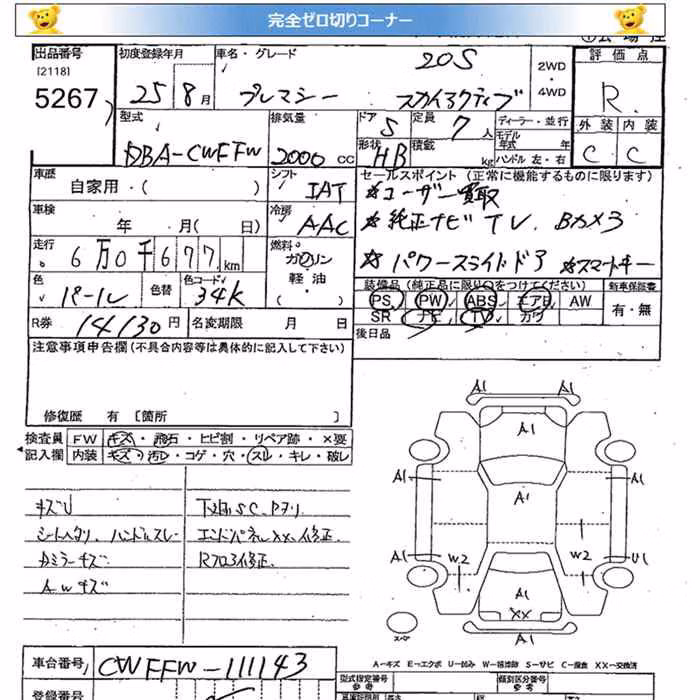 完全ゼロ切りコーナー
出品番号 初度登録年月 車名・グレード 20S 2WD 評価点
[2118]
5267 25 8月 プレマシー スカイアクティブ ・4WD R
型式 排気量 ドア 5 定員 7人 ディーラー・並行 外装 内装
モデル年式 年
DBA-CWFFW 2000cc 形状 HB 積載 kg ハンドル 左・右 C C
車歴 自家用・( ) シフト IAT セールスポイント(正常に機能するものに限ります)
☆ユーザー買取
車検 年 月( 日) 冷房 AAC ☆純正ナビ TV. Bカメラ
走行 6万0千677km 燃料 ガソリン ☆パワースライドドア ☆スマートキー
軽油 ( )
色 パール 色替 色コード 34K 装備品(純正品に限り○をつけてください) 新車保証書
PS PW ABS エアB AW 有・無
R券 14130円 名変期限 月 日 SR ナビ TV カワ
注意事項申告欄(不具合内容等は具体的に記入して下さい) 後日品
修復歴 有 [箇所 ]
検査員 FW キズ・飛石・ヒビ割・リペア跡・×要
記入欄 内装 キズ・汚レ・コゲ・穴・スレ・キレ・破レ
キズU 下廻りSC.
シートヘタリ、ハンドルスレ エンドパネルXX、修正.
ミラーキズ Rフロア修正.
AWキズ
A1 A1
A1
A1 A1 A1
A1 W2 W2 U1
A1
XX
A1
スペアー
A-キズ E-エクボ U-凹み W-補修跡 S-サビ C-腐食 XX-交換済
車台番号 CWFFW-111143 型式指定番号 類別区分番号
参考 参考
登録番号